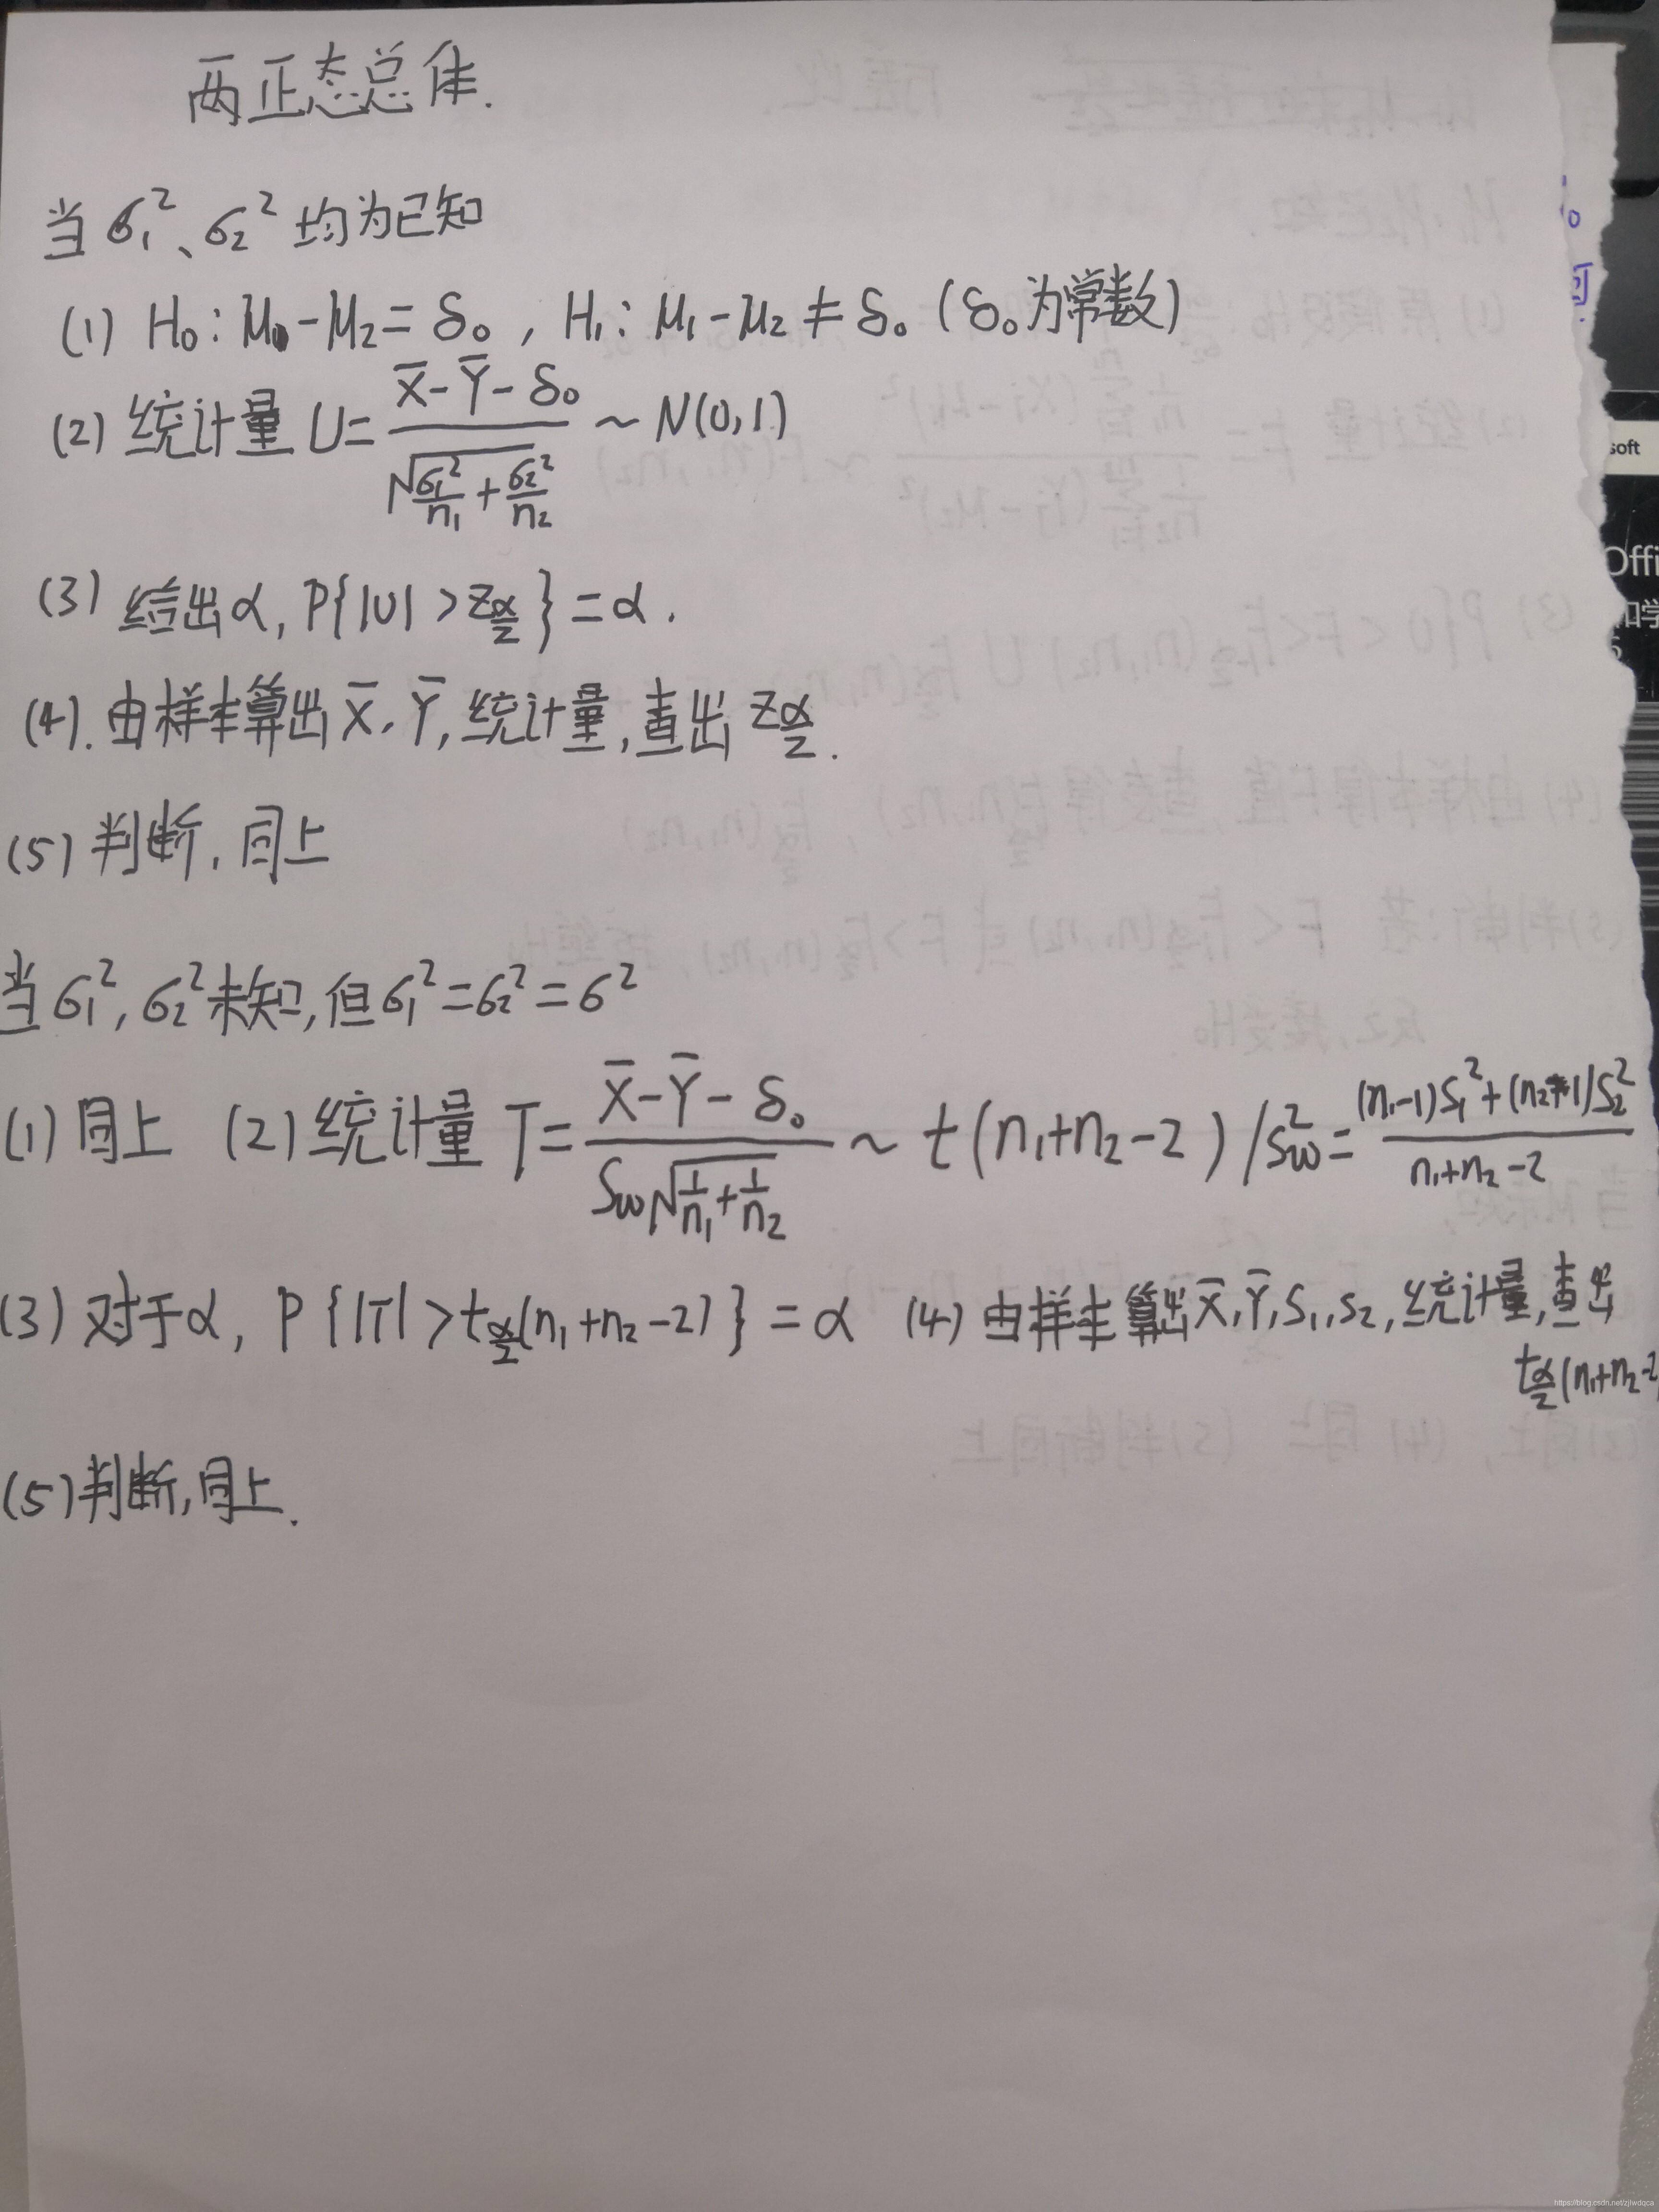 两正态总体.
当 σ₁²、σ₂² 均为已知
(1) H₀: μ₁-μ₂ = δ₀, H₁: μ₁-μ₂ ≠ δ₀ (δ₀为常数)
(2) 统计量 U = (X̄-Ȳ-δ₀)/√(σ₁²/n₁+σ₂²/n₂) ~ N(0,1)
(3) 给出α, P{|U| > z_{α/2}} = α.
(4). 由样本算出 X̄、Ȳ, 统计量, 查出 z_{α/2}.
(5) 判断, 同上
当 σ₁², σ₂² 未知, 但 σ₁² = σ₂² = σ²
(1) 同上 (2) 统计量 T = (X̄-Ȳ-δ₀)/(S_w√(1/n₁+1/n₂)) ~ t(n₁+n₂-2) / S_w² = ((n₁-1)S₁²+(n₂-1)S₂²)/(n₁+n₂-2)
(3) 对于α, P{|T| > t_{α/2}(n₁+n₂-2)} = α (4) 由样本算出 X̄, Ȳ, S₁, S₂, 统计量, 查出
t_{α/2}(n₁+n₂-2
(5) 判断, 同上.
soft
Offi
和学
https://blog.csdn.net/zjlwdqca